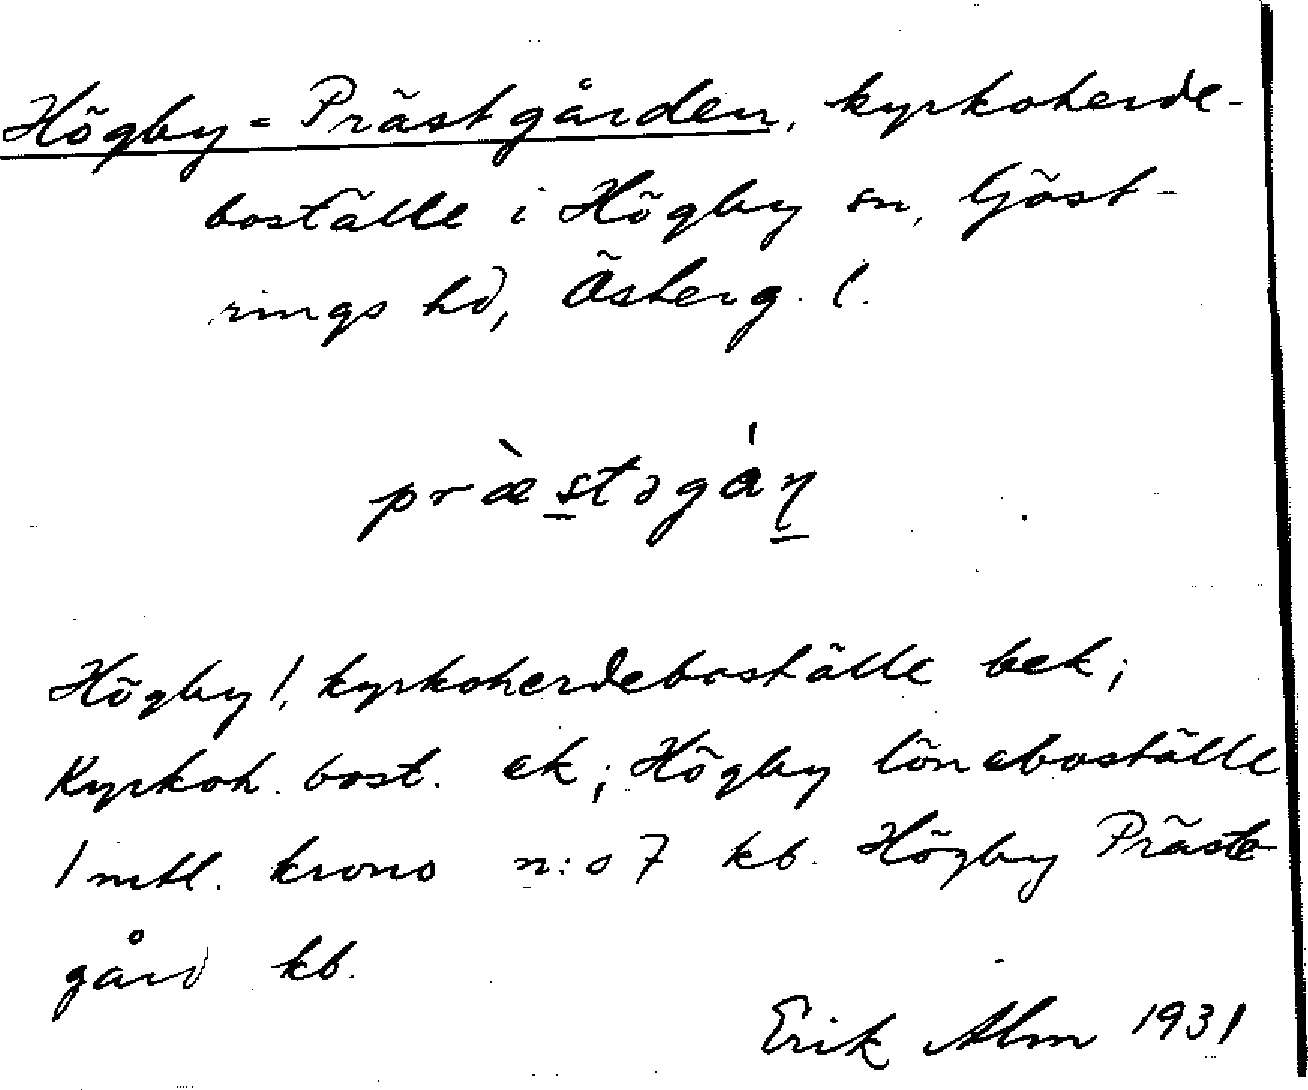 Högby-Prästgården, kyrkoherde-
boställe i Högby sn, Göst-
rings hd, Österg. l.
pr&#230;̀stəgáṇ
Högby 1, kyrkoherdeboställe bek;
Kyrkoh. bost. ek; Högby löneboställe
1 mtl. krono n:o 7 kb. Högby Präste
gård kb.
Erik Alm 1931